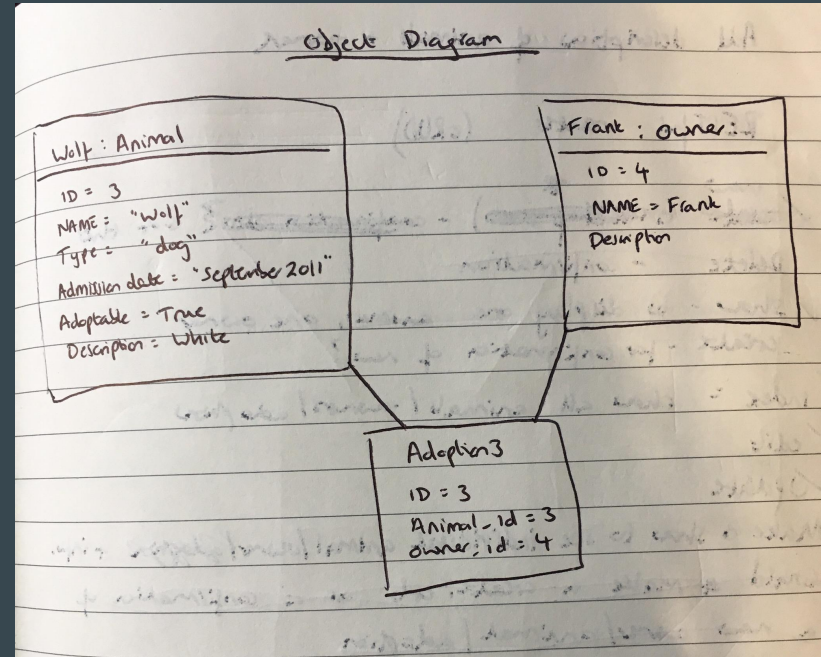 Object Diagram
Wolf : Animal
ID = 3
NAME = "Wolf"
Type = "dog"
Admission date = "September 2011"
Adoptable = True
Description = White
Frank : Owner :
ID = 4
NAME = Frank
Description
Adoption3
ID = 3
Animal_id = 3
owner_id = 4